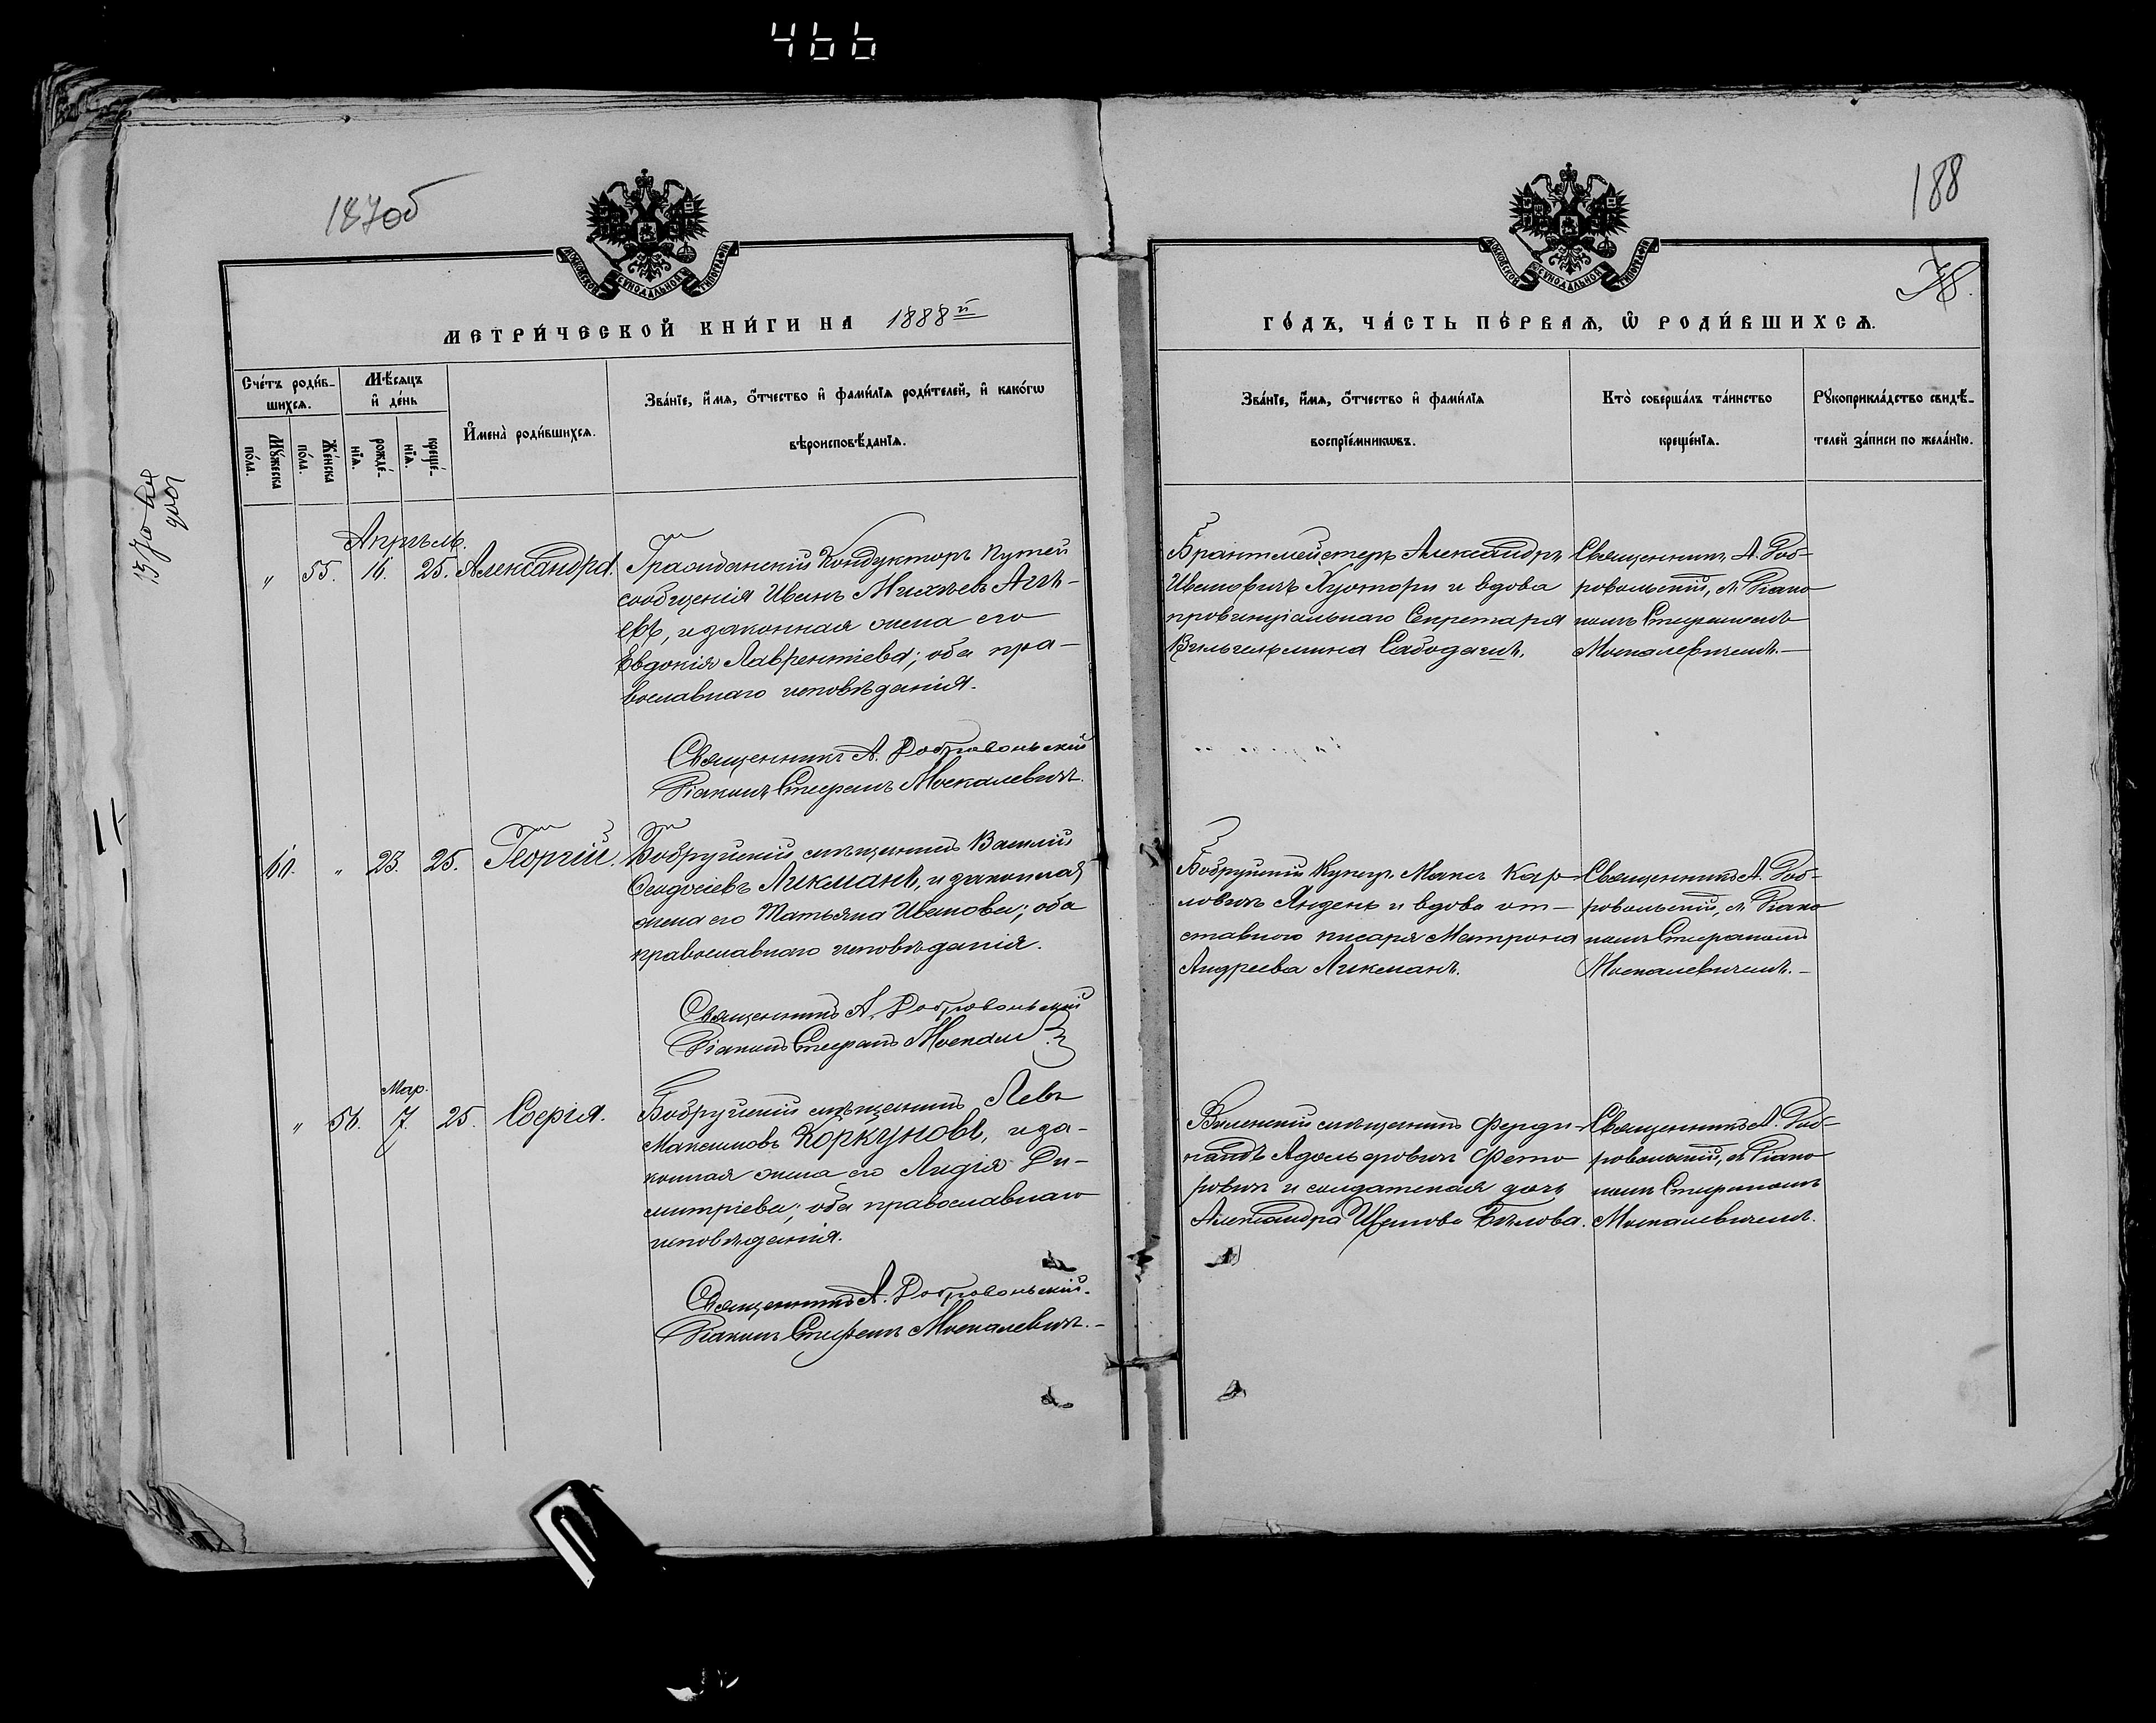 466
187об
188
МОСКОВСКОЙ СѴНОДАЛЬНОЙ ТИПОГРАФІИ
МОСКОВСКОЙ СѴНОДАЛЬНОЙ ТИПОГРАФІИ
МЕТРИ́ЧЕСКОЙ КНИ́ГИ НА 1888й
ГО́ДЪ, ЧА́СТЬ ПЕ́РВАѦ, Ѿ РОДИ́ВШИХСѦ.
Сче́тъ роди́в-
шихсѧ.
Мѣ́сѧцъ
и҆ де́нь
Мꙋ́жеска
по́ла.
Же́нска
по́ла.
рожде́-
нїѧ.
креще́-
нїѧ.
И҆мена̀ роди́вшихсѧ.
Зва́нїе, и҆́мѧ, ѻ҆́тчество и҆ фами́лїѧ роди́телей, и҆ како́гѡ
вѣроисповѣ́данїѧ.
Зва́нїе, и҆́мѧ, ѻ҆́тчество и҆ фами́лїѧ
воспрїе́мникѡвъ.
Кто̀ соверша́лъ та́инство
креще́нїѧ.
Рꙋкоприкла́дство свидѣ́-
телей за́писи по жела́нїю.
Апрѣль.
" 55. 16. 25. Александра.
Гражданскій Кондукторъ путей
сообщенія Иванъ Михѣевъ
и законная жена его
Евдокія Лаврентіева; оба пра-
вославнаго исповѣданія.
Священникъ А. Добровольскій
Діаконъ Стефанъ Москалевичъ.
Брантмейстеръ Александръ
Ивановичъ и вдова
провинціальнаго Секретаря
Вильгельмина
Священникъ А. Доб-
ровольскій, съ Діако
номъ Стефаномъ
Москалевичемъ.—
60. " 23. 25. Георгій.
Бобруйскій мѣщанинъ Василій
Ѳеодосіевъ Ликманъ, и законная
жена его Татьяна Иванова; оба
православнаго исповѣданія.
Священникъ А. Добровольскій
Діаконъ Стефанъ Москал
Бобруйскій Купецъ Максъ Кар-
ловичъ и вдова от-
ставного писаря Матрона
Андреева Ликманъ.
Священникъ А. Доб-
ровольскій, съ Діако
номъ Стефаномъ
Москалевичемъ.—
Мар.
" 56. 7. 25. Софія.
Бобруйскій мѣщанинъ Левъ
Максимовъ Коркуновъ, и за-
конная жена его Лидія Ди-
митріева; оба православнаго
исповѣданія.
Священникъ А. Добровольскій.
Діаконъ Стефанъ Москалевичъ.—
Виленскій мѣщанинъ Ферди-
нандъ Адольфовичъ
и солдатская дочь
Александра Иванова Бѣлова.
Священникъ А. Доб-
ровольскій, съ Діако
номъ Стефаномъ
Москалевичемъ.